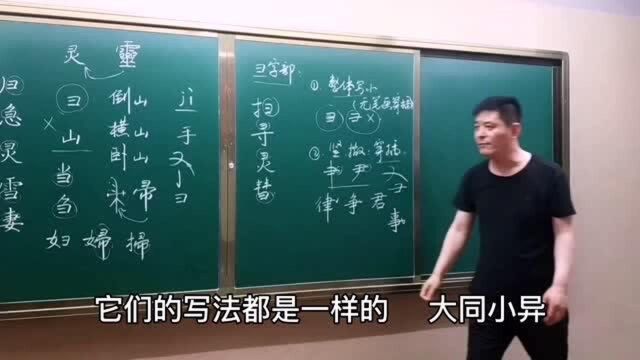 灵 靈
彐 急 灵 雪 妻
彐
× 山
当
刍
倒山
横山
卧山
帚
手
彐
妇 婦 掃
彐字部:
扫 寻 灵 彗
① 整体写小
(无笔画穿插)
② 竖撇穿插
律 争 君
事
它们的写法都是一样的 大同小异